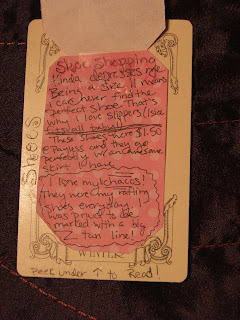 Shoe Shopping
Kinda depresses me
Being a size 11 means
I can never find the
perfect shoe. That's
why I love slippers (1 size
fits all baby)
These shoes were $1.50
@ Payless and they go
perfectly w/ an awesome
skirt I have
I love my chacos!
They were my rafting
shoes everyday I
was proud to be
marked with a big
Z tan line!
SHOES
WINTER
Peek under ↑ to Read!